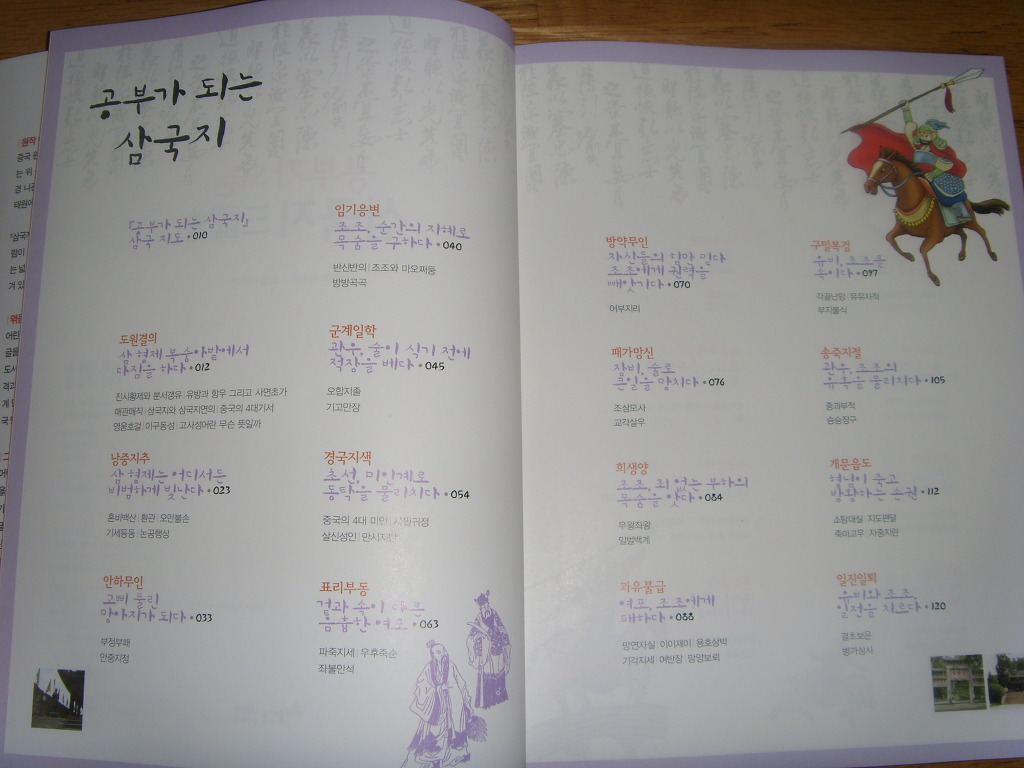 공부가 되는
삼국지
「공부가 되는 삼국지」
삼국 지도 • 010
도원결의
삼 형제 복숭아밭에서
다짐을 하다 • 012
진시황제와 분서갱유 | 유방과 항우 그리고 사면초가
매관매직 | 삼국지와 삼국지연의 | 중국의 4대기서
영웅호걸 | 이구동성 | 고사성어란 무슨 뜻일까
낭중지추
삼 형제는 어디서든
비범하게 빛난다 • 023
혼비백산 | 환관 | 오만불손
기세등등 | 논공행상
안하무인
고삐 풀린
망아지가 되다 • 033
부정부패
안중지정
임기응변
조조, 순간의 지혜로
목숨을 구하다 • 040
반신반의 | 조조와 마오쩌둥
방방곡곡
군계일학
관우, 술이 식기 전에
적장을 베다 • 045
오합지졸
기고만장
경국지색
초선, 미인계로
동탁을 물리치다 • 054
중국의 4대 미인 | 사필귀정
살신성인 | 만시지탄
표리부동
겉과 속이 다른
음흉한 여포 • 063
파죽지세 | 우후죽순
좌불안석
방약무인
자신들의 힘만 믿다
조조에게 권력을
빼앗기다 • 070
어부지리
패가망신
장비, 술로
큰일을 망치다 • 076
조삼모사
교각살우
희생양
조조, 죄 없는 부하의
목숨을 앗다 • 084
우왕좌왕
일벌백계
과유불급
여포, 조조에게
패하다 • 088
망연자실 | 이이제이 | 용호상박
기각지세 | 여반장 | 망양보뢰
구밀복검
유비, 조조를
속이다 • 097
각골난망 | 유유자적
부지불식
송죽지절
관우, 조조의
유혹을 물리치다 • 105
중과부적
승승장구
개문읍도
형님이 죽고
방황하는 손권 • 112
소탐대실 | 지도편달
죽마고우 | 자중지란
일진일퇴
유비와 조조,
일전을 치르다 • 120
결초보은
병가상사